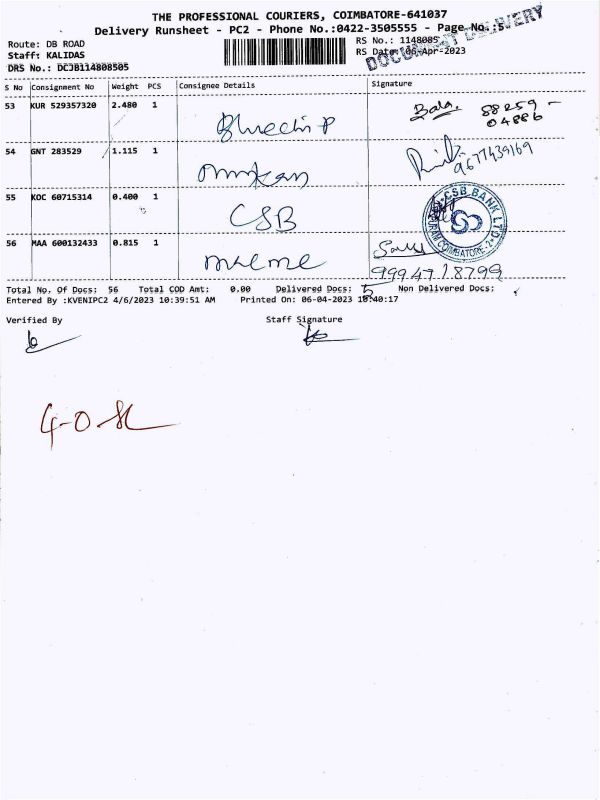 THE PROFESSIONAL COURIERS, COIMBATORE-641037
Delivery Runsheet - PC2 - Phone No.:0422-3505555 - Page No.:5
DOCUMENT DELIVERY
Route: DB ROAD
RS No.: 1148085
Staff: KALIDAS
RS Date: 06-Apr-2023
DRS No.: DCJB114808505
S No Consignment No Weight PCS Consignee Details Signature
53 KUR 529357320 2.480 1 Bala. 88259 -
04886
54 GNT 283529 1.115 1 9677439169
55 KOC 60715314 0.400 1 CSB CSB BANK LTD COIMBATORE-2
56 MAA 600132433 0.815 1
9994718799
Total No. Of Docs: 56 Total COD Amt: 0.00 Delivered Docs: 5 Non Delivered Docs:
Entered By :KVENIPC2 4/6/2023 10:39:51 AM Printed On: 06-04-2023 10:40:17
Verified By Staff Signature